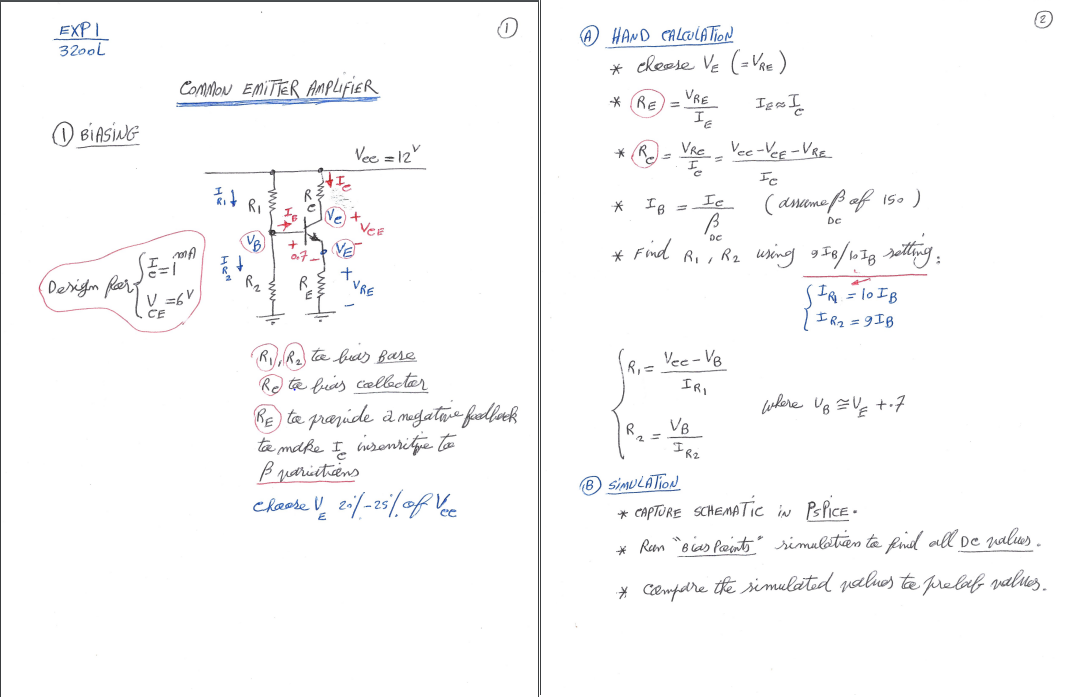 ①
EXP 1
3200L
COMMON EMITTER AMPLIFIER
① BIASING
Vcc = 12V
IC
IR1 ↓
R1
RC
IB
VC
+
VCE
VB
+
0.7 -
VE -
IR2 ↓
R2
RE
+
VRE
-
Design for { IC = 1 mA
VCE = 6V
R1, R2 to bias Base
Rc to bias collector
RE to provide a negative feedback
to make Ic insensitive to
β variations
choose VE 20% - 25% of Vcc
②
Ⓐ HAND CALCULATION
* choose VE (= VRE)
* RE = VRE / IE IE ≈ Ic
* Rc = VRc / Ic = Vcc - VCE - VRE / Ic
* IB = Ic / βDC (assume βDC of 150)
* Find R1, R2 using 9IB/10IB setting:
{ IR1 = 10 IB
IR2 = 9 IB
{ R1 = Vcc - VB / IR1
where VB ≅ VE + .7
R2 = VB / IR2
Ⓑ SIMULATION
* CAPTURE SCHEMATIC IN PSPICE.
* Run "Bias Points" simulation to find all DC values.
* Compare the simulated values to prelab values.